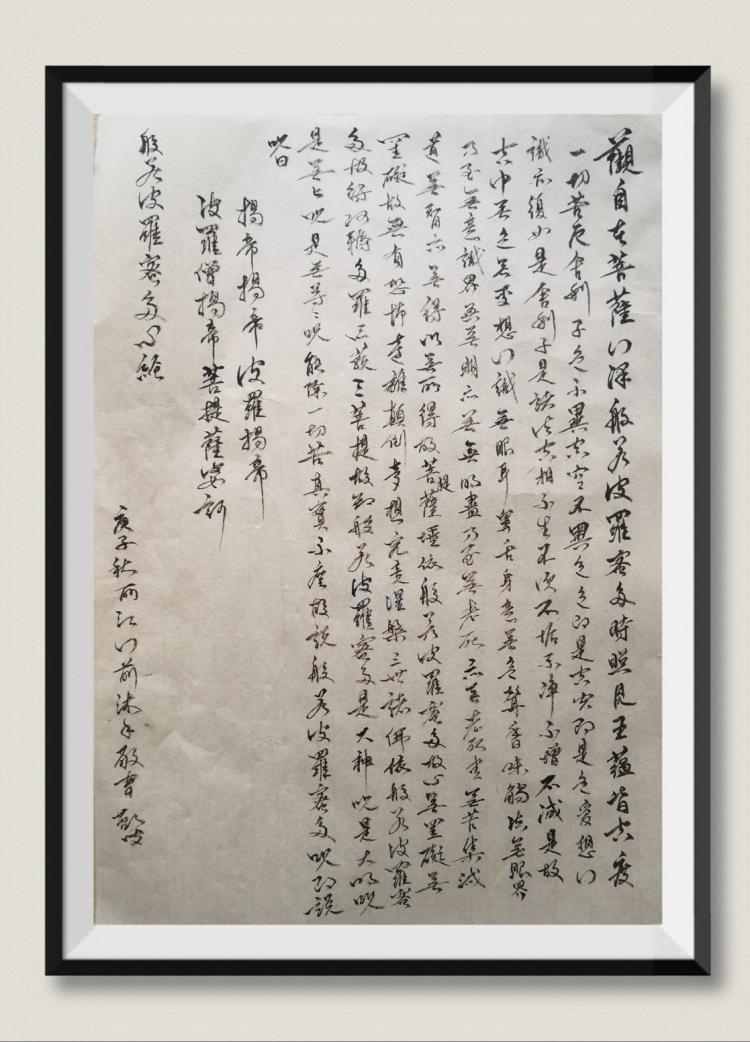 觀自在菩薩行深般若波羅密多時照見五蘊皆空度
一切苦厄舍利子色不異空空不異色色即是空空即是色受想行
識亦復如是舍利子是諸法空相不生不滅不垢不净不增不減是故
空中無色無受想行識無眼耳鼻舌身意無色聲香味觸法無眼界
乃至無意識界無無明亦無無明盡乃至無老死亦無老死盡無苦集滅
道無智亦無得以無所得故菩提薩埵依般若波羅密多故心無罣礙無
罣礙故無有恐怖遠離顛倒夢想究竟涅槃三世諸佛依般若波羅密
多故得阿耨多羅三藐三菩提故知般若波羅密多是大神咒是大明咒
是無上咒是無等等咒能除一切苦真實不虛故說般若波羅密多咒即說
咒曰
揭帝揭帝波羅揭帝
波羅僧揭帝菩提薩婆訶
般若波羅密多心經
庚子秋西江門前沐手敬書